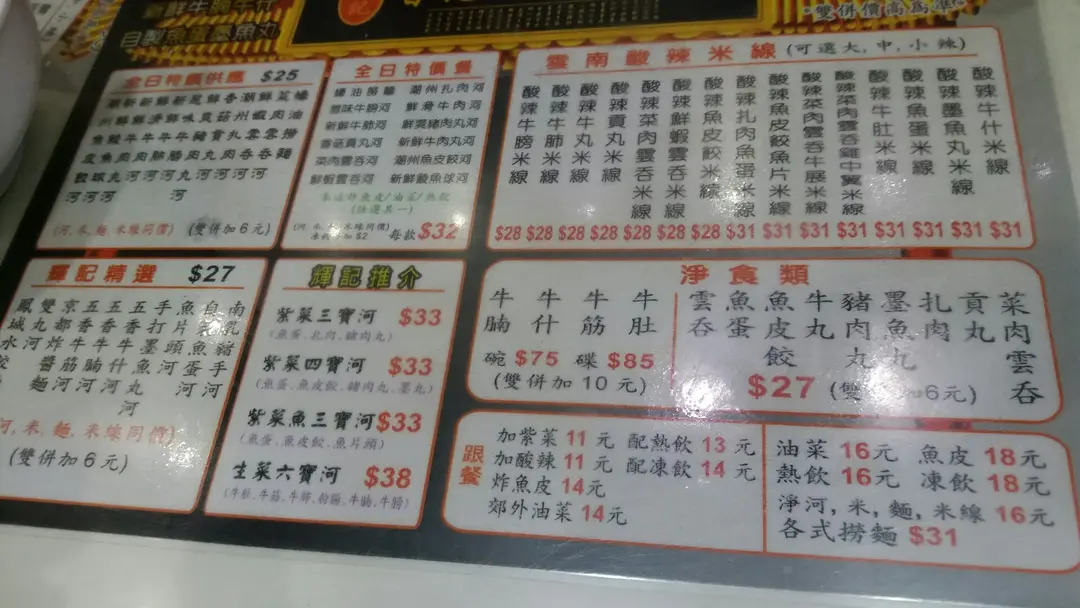 自製魚蛋墨魚丸
*雙併價高為準*
全日特價供應 $25
潮州魚皮餃河
新鮮鯪魚球河
新鮮牛肉丸河
鮮滑牛肉河
新鮮牛肺河
惹味牛膀河
鮮爽豬肉丸河
香菇貢丸河
潮州扎肉河
鮮蝦雲吞河
菜肉雲吞河
蠔油撈麵
(河,米,麵,米線同價) (雙併加6元)
全日特價餐
蠔油撈麵 潮州扎肉河
惹味牛膀河 鮮滑牛肉河
新鮮牛肺河 鮮爽豬肉丸河
香菇貢丸河 新鮮牛肉丸河
菜肉雲吞河 潮州魚皮餃河
鮮蝦雲吞河 新鮮鯪魚球河
(隨選其一)
每款 $32
雲南酸辣米線(可選大,中,小辣)
酸辣牛膀米線
酸辣牛肺米線
酸辣牛丸米線
酸辣貢丸米線
酸辣菜肉雲吞米線
酸辣鮮蝦雲吞米線
酸辣魚皮餃米線
酸辣扎肉魚蛋米線
酸辣魚皮餃魚片米線
酸辣菜肉雲吞牛展米線
酸辣菜肉雲吞雞中翼米線
酸辣牛肚米線
酸辣魚蛋米線
酸辣墨魚丸米線
酸辣牛什米線
$28 $28 $28 $28 $28 $28 $28 $31 $31 $31 $31 $31 $31 $31 $31
輝記精選 $27
鳳城水餃
雙丸河
京都炸醬麵
五香牛筋河
五香牛腩河
五香牛什河
手打墨魚丸河
魚片頭河
自家魚蛋河
南乳豬手河
河,米,麵,米線同價)
(雙併加6元)
輝記推介
紫菜三寶河 $33
(魚蛋,扎肉,豬肉丸)
紫菜四寶河 $33
(魚蛋,魚皮餃,豬肉丸,墨丸)
紫菜魚三寶河 $33
(魚蛋,魚皮餃,魚片頭)
生菜六寶河 $38
淨食類
牛腩
牛什
牛筋
牛肚
碗 $75 碟 $85
(雙併加 10 元)
雲吞
魚蛋
魚皮餃
牛丸
豬肉丸
墨魚丸
扎肉
貢丸
菜肉雲吞
$27 (雙 加6元)
跟餐
加紫菜 11 元 配熱飲 13 元
加酸辣 11 元 配凍飲 14 元
炸魚皮 14元
郊外油菜 14元
油菜 16元 魚皮 18元
熱飲 16元 凍飲 18元
淨河,米,麵,米線 16元
各式撈麵 $31